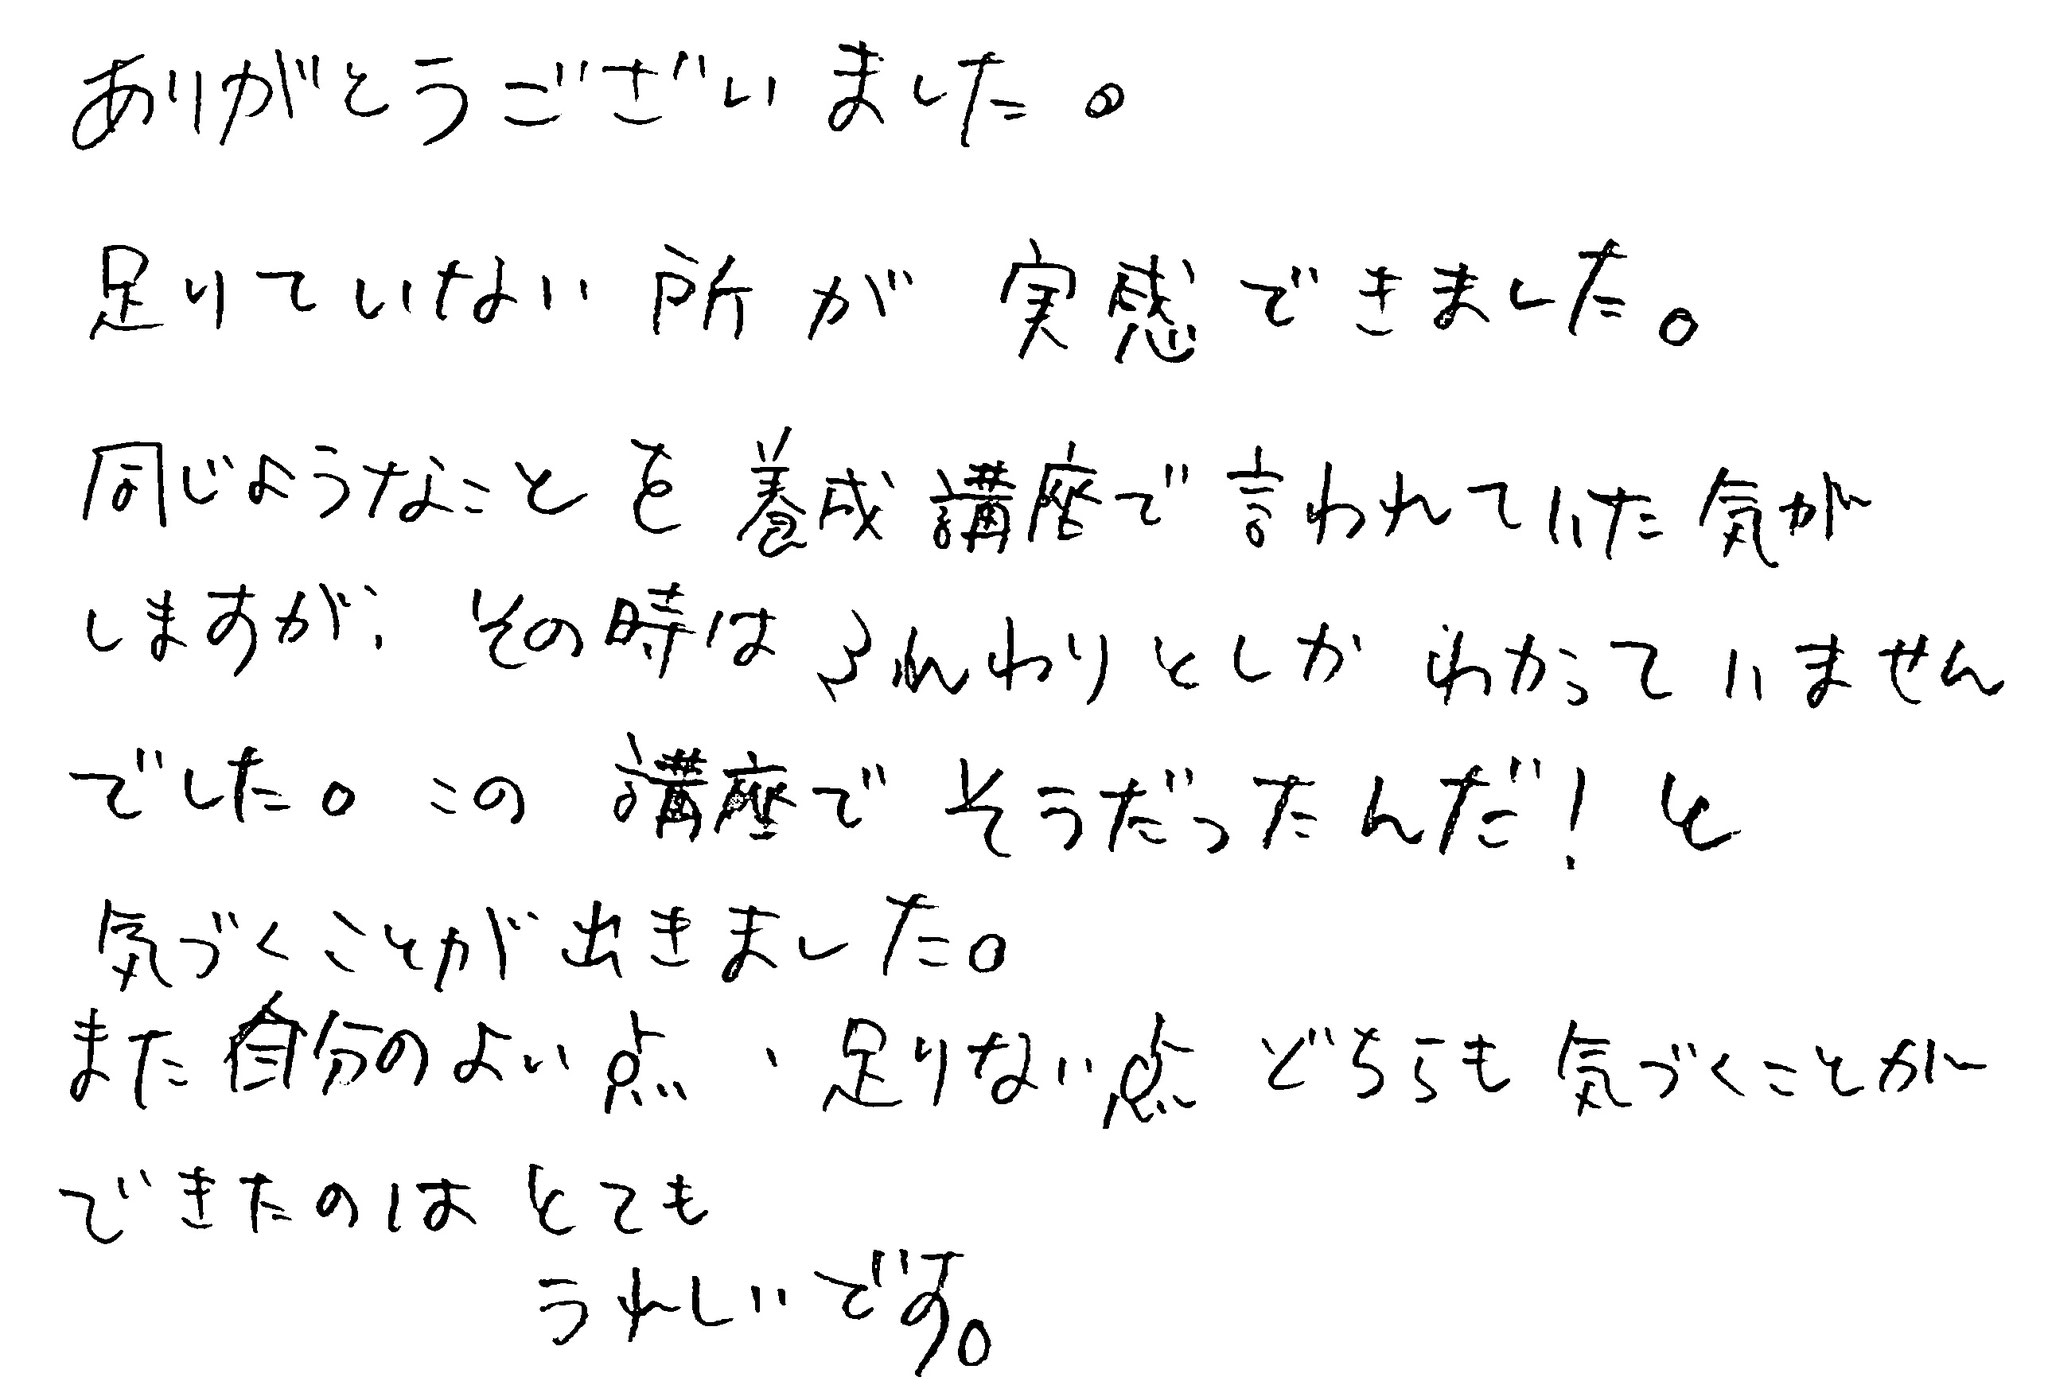 ありがとうございました。
足りていない所が実感できました。
同じようなことを養成講座で言われていた気が
しますが、その時はふんわりとしかわかっていません
でした。この講座でそうだったんだ！と
気づくことが出きました。
また自分のよい点、足りない点どちらも気づくことが
できたのはとても
うれしいです。